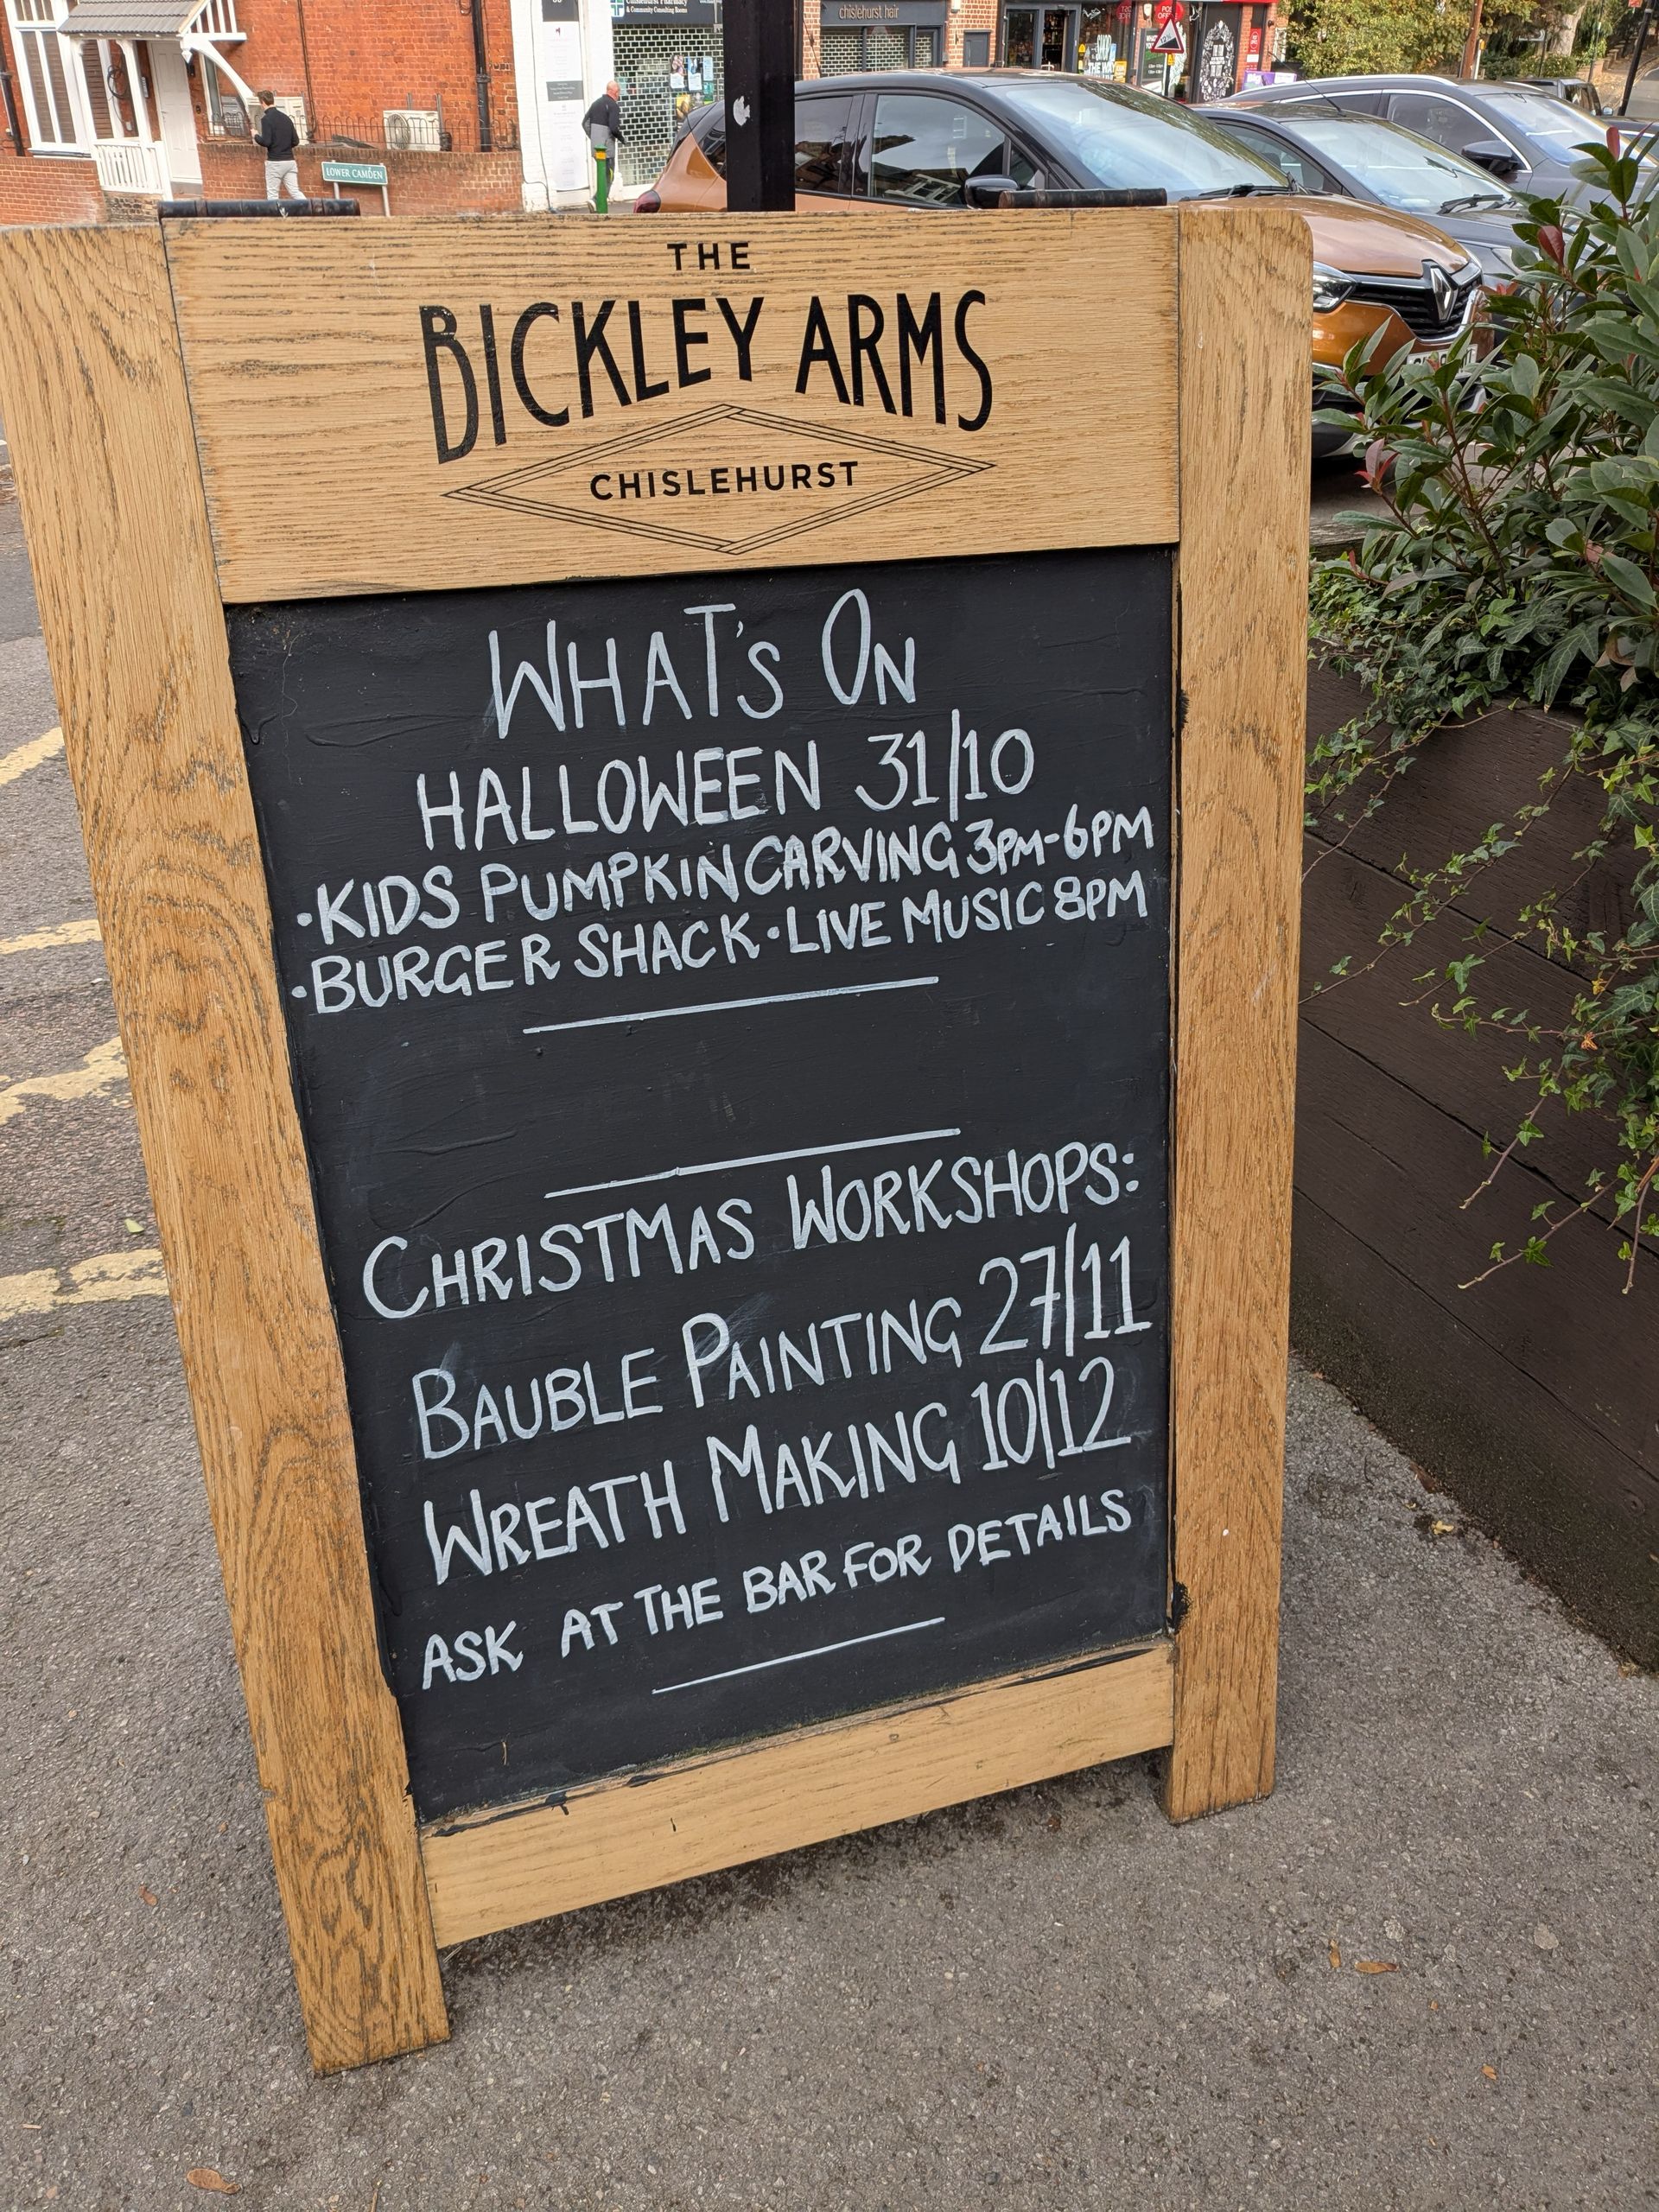 Chislehurst Pharmacy
& Community Consulting Rooms
chislehurst hair
LOWER CAMDEN
THE
BICKLEY ARMS
CHISLEHURST
WHAT'S ON
HALLOWEEN 31/10
·KIDS PUMPKIN CARVING 3PM-6PM
·BURGER SHACK·LIVE MUSIC 8PM
CHRISTMAS WORKSHOPS:
BAUBLE PAINTING 27/11
WREATH MAKING 10/12
ASK AT THE BAR FOR DETAILS